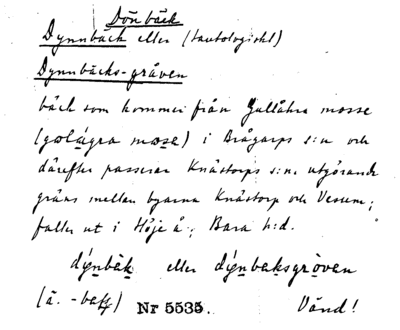 Dönbäck
Dynnbäck eller (tautologiskt)
Dynnbäcks-gråven
bäck som kommer från Gullåkra mosse
(golågra mose) i Brågarps s:n och
därefter passerar Knästorps s:n, utgörande
gräns mellan byarna Knästorp och Vesum;
faller ut i Höje å; Bara h:d.
dýnbäk eller dýnbaksgröven
(ä. -bæk) Nr 5535. Vänd!